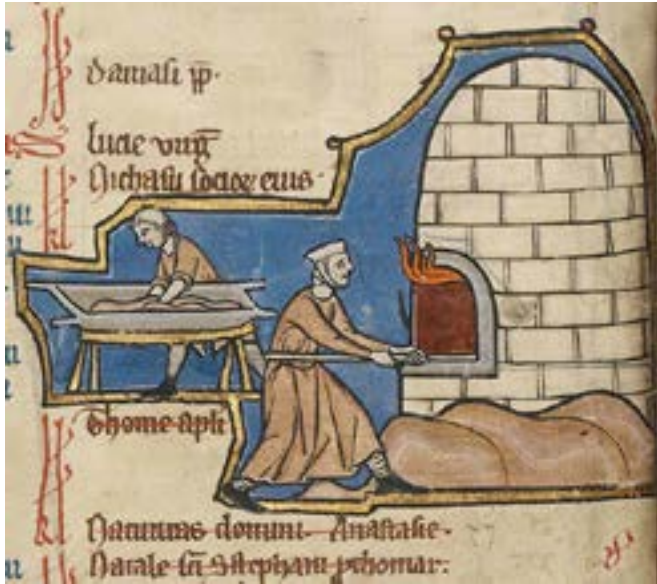 damasi pp.
lucie virg̅
Nichasii socioꝝ eius.
thome apli
Natiuitas domini. Anastasie.
Natale sc̅i Stephani pthomar: